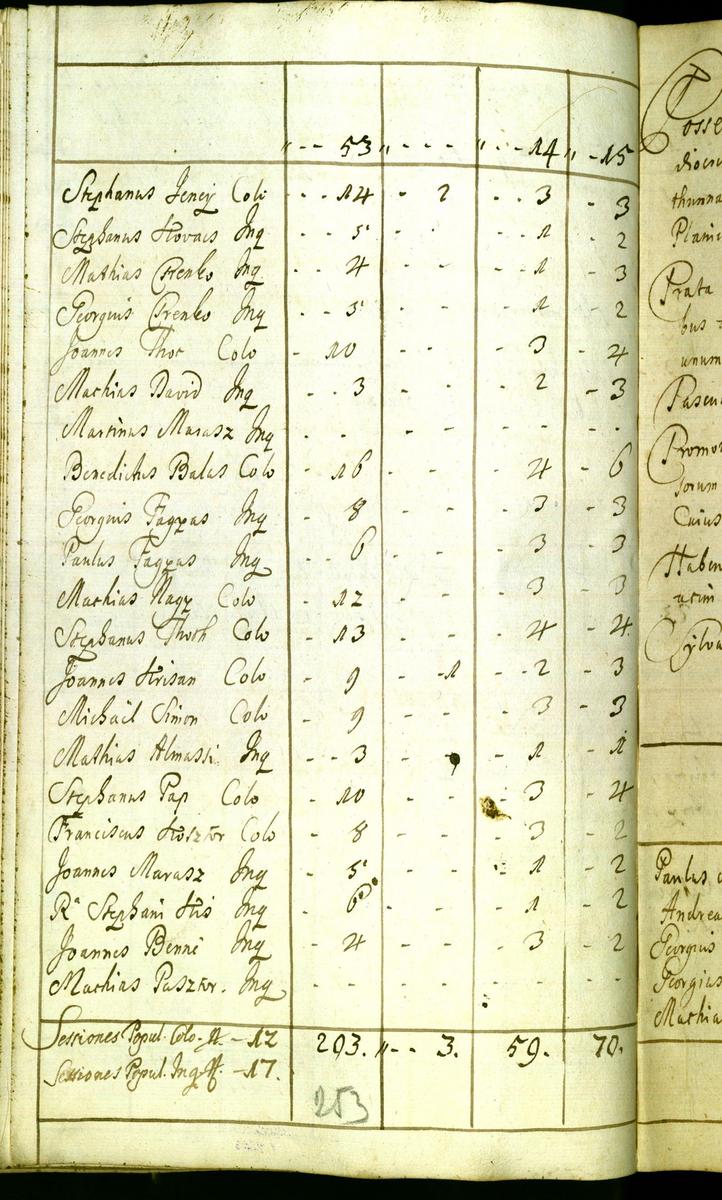 " - - 53 " - - - " - - 14 " - 15
Stephanus Jeney Colo - - - 14 - 2 - - 3 - 3
Stephanus Kovacs Inq - - 5 - - 1 - 2
Mathias Czenko Inq - - 4 - - - 1 - 3
Georgius Czenko Inq - - 5 - - 1 - 2
Joannes Thot Colo - 10 - - - 3 - 4
Mathias David Inq - - 3 - - 2 - 3
Martinus Marasz Inq - - - - - - - -
Benedictus Balas Colo - 16 - - - 4 - 6
Georgius Fagyas Inq - 8 - - - 3 - 3
Paulus Fagyas Inq - - 6 - - - 3 - 3
Mathias Nagy Colo - 12 - - 3 - 3
Stephanus Thoth Colo - 13 - - - 4 - 4
Joannes Krisan Colo - 9 - 1 - - 2 - 3
Michaël Simon Colo - 9 - - - - 3 - 3
Mathias Almassi Inq - - 3 - - 1 - 1
Stephanus Pap Colo - 10 - - - 3 - 4
Franciscus Kosztor Colo - 8 - - - 3 - 2
Joannes Marasz Inq - 5 - - 1 - 2
Ra Stephani Kis Inq - 6 - - - 1 - 2
Joannes Benne Inq - 4 - - - 3 - 2
Mathias Pasztor. Inq - - - - - - -
Sessiones Popul. Colo. - 12 293. " - - 3. 59. 70.
Sessiones Popul. Inq - 17.
253
Posse
diocri
thunna
Planic
Prata
bus
unum
Pascu
Promon
sorum
Cuius
Haben
acim
Sylva
Paulus
Andrea
Georgius
Georgius
Mathia